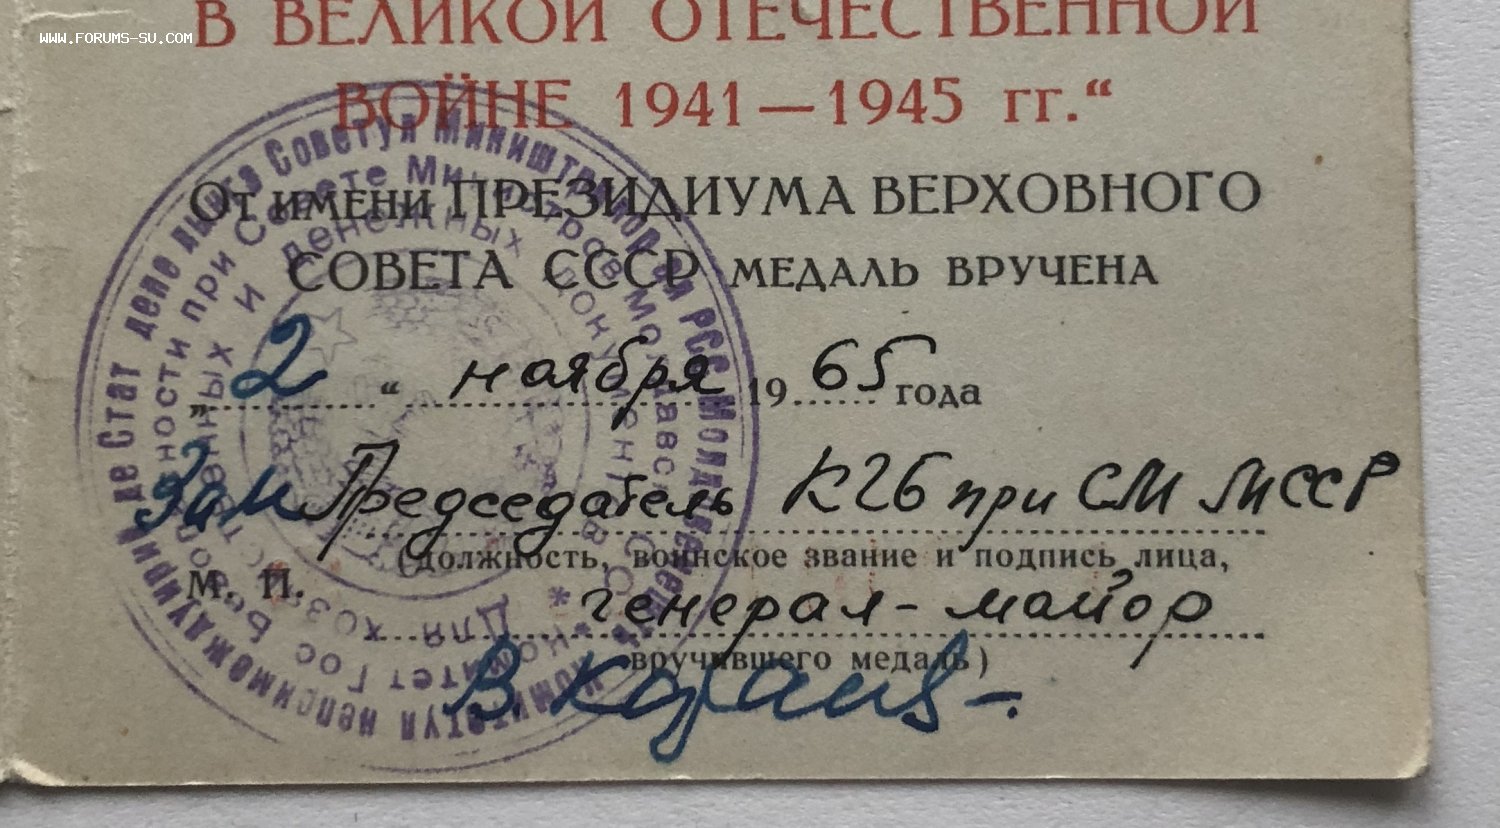 WWW.FORUMS-SU.COM
В ВЕЛИКОЙ ОТЕЧЕСТВЕННОЙ
ВОЙНЕ 1941—1945 гг.“
От имени ПРЕЗИДИУМА ВЕРХОВНОГО
СОВЕТА СССР МЕДАЛЬ ВРУЧЕНА
„ 2 “ ноября 1965 года
Зам Председатель КГБ при СМ МССР
(должность, воинское звание и подпись лица,
М. П.
генерал-майор
вручившего медаль)
В.
Советул Миништрилор
РСС Молдовенешть
при Совете Министров Молдавской ССР
Комитет Гос
Для
денежных документов